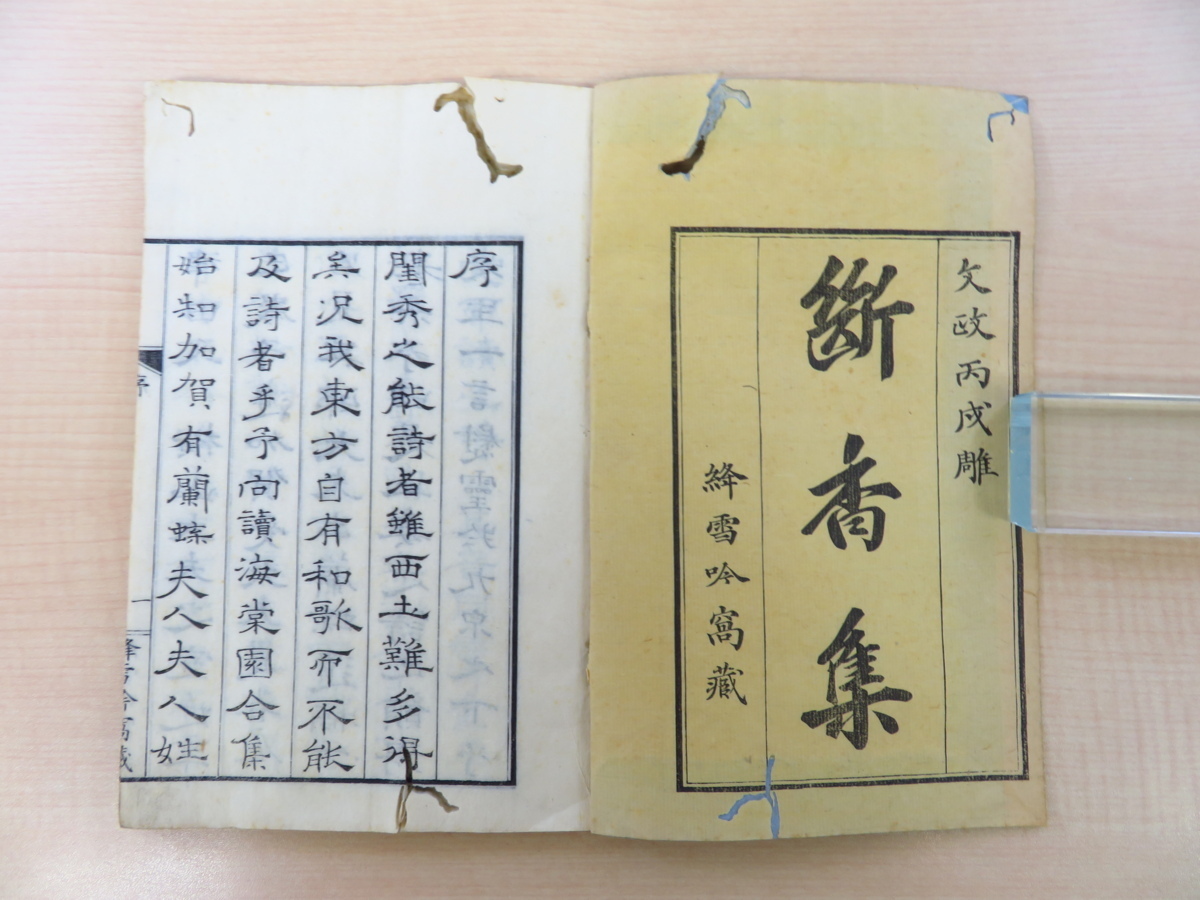 文政丙戌雕
斷香集
絳雪吟窩藏
序
閨秀之能詩者雖西土難多得
矣況我東方自有和歌而不能
及詩者乎予向讀海棠園合集
始知加賀有蘭蝶夫人夫人姓
序
一
絳雪吟窩藏